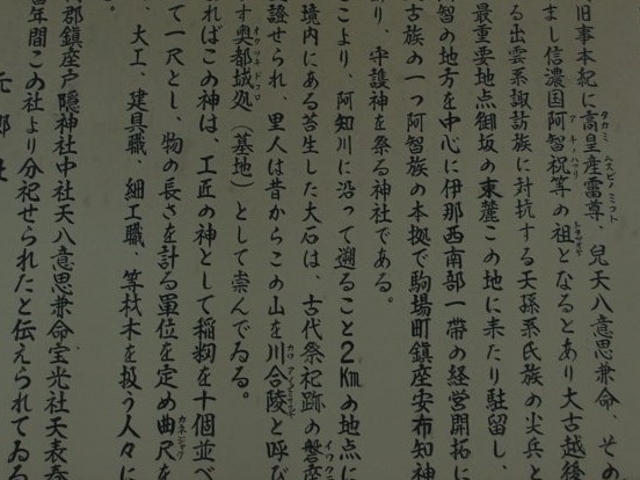 旧事本紀に高皇産霊尊、兒天八意思兼命、その
タカミ ムスビノ ミコト
まし信濃国阿智祝等の祖となるとあり太古越後
ア チノ ハフリ
る出雲系諏訪族に対抗する天孫系氏族の尖兵と
最重要地点御坂の東麓この地に来たり駐留し、
智の地方を中心に伊那西南部一帯の経営開拓に
古族の一つ阿智族の本拠で駒場町鎮座安布知神
り、守護神を祭る神社である。
こより、阿知川に沿って遡ること2Kmの地点に
境内にある苔生した大石は、古代祭祀跡の磐座
イワクラ
證せられ、里人は昔からこの山を川合陵と呼び
す奥都城処(墓地)として崇んでゐる。
ればこの神は、工匠の神として稲籾を十個並べ
て一尺とし、物の長さを計る單位を定め曲尺を
カネジャク
、大工、建具職、細工職、等材木を扱う人々に
。
郡鎮座戸隠神社中社天八意思兼命宝光社天表春
年間この社より分祀せられたと伝えられてゐる
元